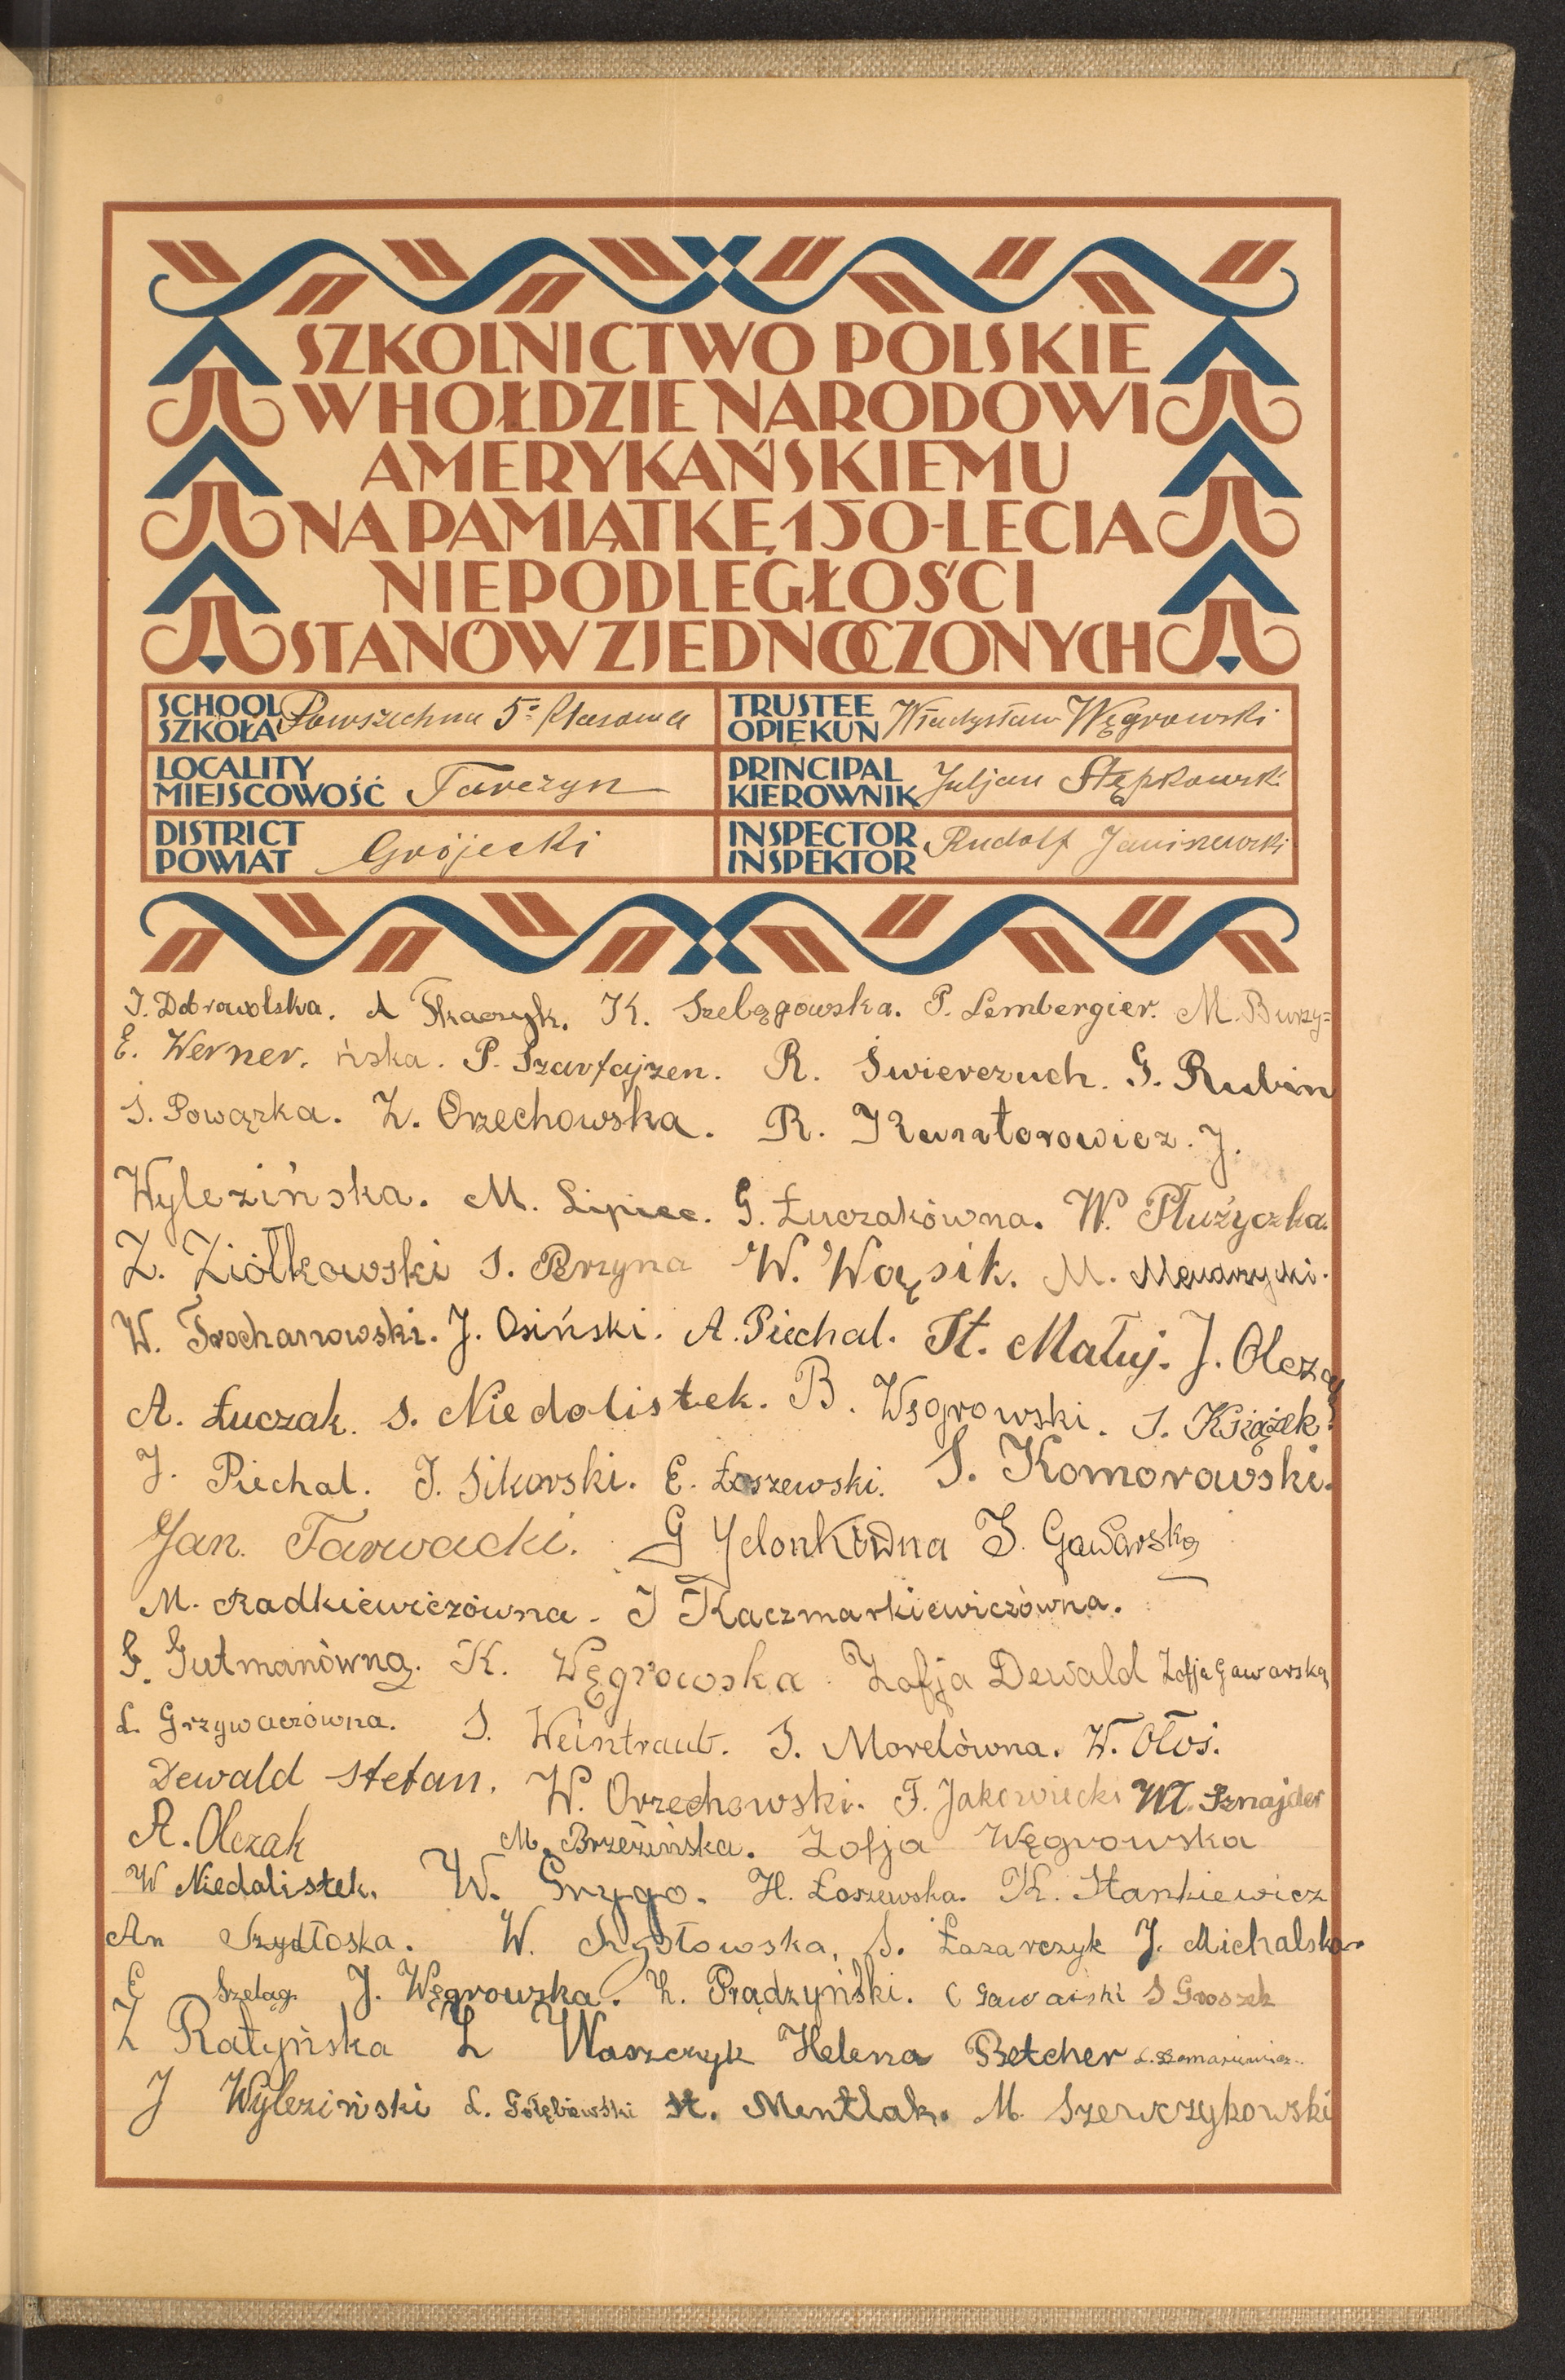 SZKOLNICTWO POLSKIE
W HOŁDZIE NARODOWI
AMERYKAŃSKIEMU
NA PAMIĄTKĘ 150-LECIA
NIEPODLEGŁOŚCI
STANÓW ZJEDNOCZONYCH
SCHOOL SZKOŁA Powszechna 5º klasowa
TRUSTEE OPIEKUN Władysław Węgrowski
LOCALITY MIEJSCOWOŚĆ Tarczyn
PRINCIPAL KIEROWNIK Juljan Stępkowski
DISTRICT POWIAT Grójecki
INSPECTOR INSPEKTOR Rudolf Janiszewski
J. Dobrowolska. A Tkaczyk. K. Szelągowska. P. Lembergier. M. Burzy=
E. Werner. ńska. P. Szarfajzen. R. Świerczuch. G. Rubin
S. Powązka. Z. Orzechowska. R. Kantorowicz. J.
Wylezińska. M. Lipiec. G. Łuczakówna. W. Płużyczka.
Z. Ziółkowski S. Perzyna W. Wąsik. M.
W. Trochanowski. J. Osiński. A. Piechal. St. Małuj. J. Olcza
A. Łuczak. S. Niedolistek. B. Węgrowski. S. Książek.
J. Piechal. J. Sikorski. E. Łoszewski. S. Komorowski.
Jan. Tarwacki. G Jelonkówna S. Gawarska
M. Radkiewiczówna. J Kaczmarkiewiczówna.
G. Gutmanówna. K. Węgrowska Zofja Dewald Zofja Gawarska
L. Grzywaczówna. S. Weintraub. S. Morelówna. W. Ołoś.
Dewald Stefan. W. Orzechowski. F. Jakowiecki Wł. Sznajder
A. Olczak M. Brzezińska. Zofja Węgrowska
W Niedalistek. W. Grygo. H. Łoszewska. K. Stankiewicz
An Szydłoska. W. Szydłowska, S. Łazarczyk J. Michalska.
E Szeląg. J. Węgrowska. Z. Prądzyński. C Gawarski S Groszek
Z Ratyńska L Waszczyk Helena Betcher
J Wyleziński L. Gołębiowski St. Mentlak. M. Szewczykowski